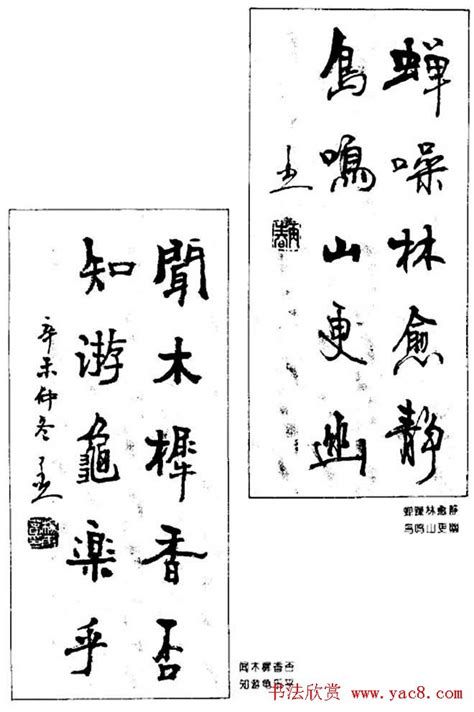 蝉噪林愈静
鸟鳴山更幽
蝉躁林愈静
鸟鸣山更幽
聞木樨香否
知游龜楽乎
辛未仲冬
闻木樨香否
知游龟乐乎
书法欣赏 www.yac8.com